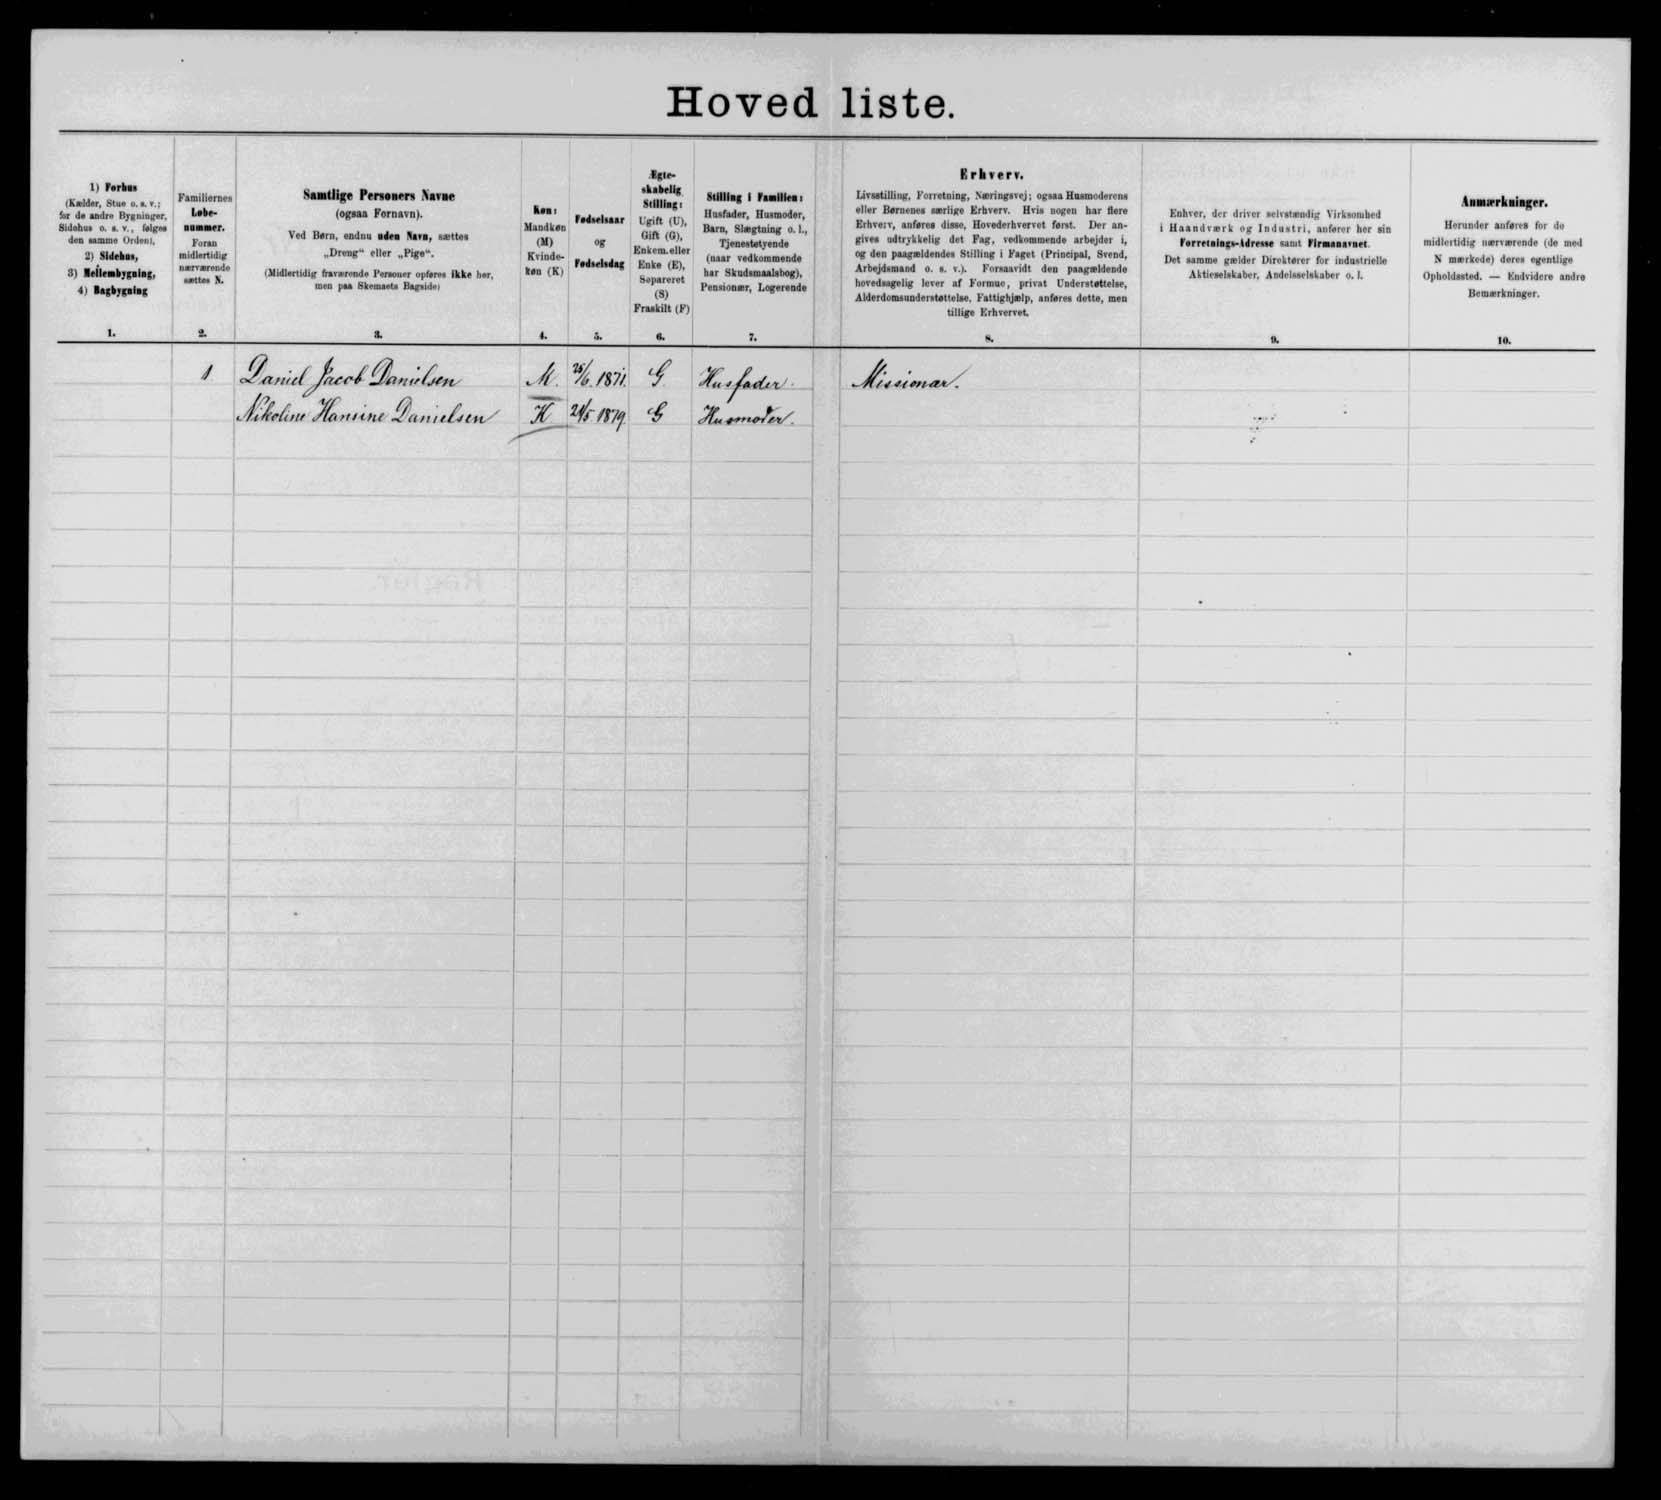 Hoved liste.
1) Forhus
(Kælder, Stue o. s. v.;
for de andre Bygninger,
Sidehus o. s. v., følges
den samme Orden),
2) Sidehus,
3) Mellembygning,
4) Bagbygning
1.
Familiernes
Løbe-
nummer.
Foran
midlertidig
nærværende
sættes N.
2.
Samtlige Personers Navne
(ogsaa Fornavn).
Ved Børn, endnu uden Navn, sættes
„Dreng“ eller „Pige“.
(Midlertidig fraværende Personer opføres ikke her,
men paa Skemaets Bagside)
3.
Køn:
Mandkøn
(M)
Kvinde-
køn (K)
4.
Fødselsaar
og
Fødselsdag
5.
Ægte-
skabelig
Stilling:
Ugift (U),
Gift (G),
Enkem. eller
Enke (E),
Separeret
(S)
Fraskilt (F)
6.
Stilling i Familien:
Husfader, Husmoder,
Barn, Slægtning o. l.,
Tjenestetyende
(naar vedkommende
har Skudsmaalsbog),
Pensionær, Logerende
7.
Erhverv.
Livsstilling, Forretning, Næringsvej; ogsaa Husmoderens
eller Børnenes særlige Erhverv. Hvis nogen har flere
Erhverv, anføres disse, Hovederhvervet først. Der an-
gives udtrykkelig det Fag, vedkommende arbejder i,
og den paagældendes Stilling i Faget (Principal, Svend,
Arbejdsmand o. s. v.). Forsaavidt den paagældende
hovedsagelig lever af Formue, privat Understøttelse,
Alderdomsunderstøttelse, Fattighjælp, anføres dette, men
tillige Erhvervet.
8.
Enhver, der driver selvstændig Virksomhed
i Haandværk og Industri, anfører her sin
Forretnings-Adresse samt Firmanavnet.
Det samme gælder Direktører for industrielle
Aktieselskaber, Andelsselskaber o. l.
9.
Anmærkninger.
Herunder anføres for de
midlertidig nærværende (de med
N mærkede) deres egentlige
Opholdssted. — Endvidere andre
Bemærkninger.
10.
1. Daniel Jacob Danielsen M. 25/6. 1871. G. Husfader. Missionær.
Nikoline Hansine Danielsen K. 21/5. 1879. G Husmoder.